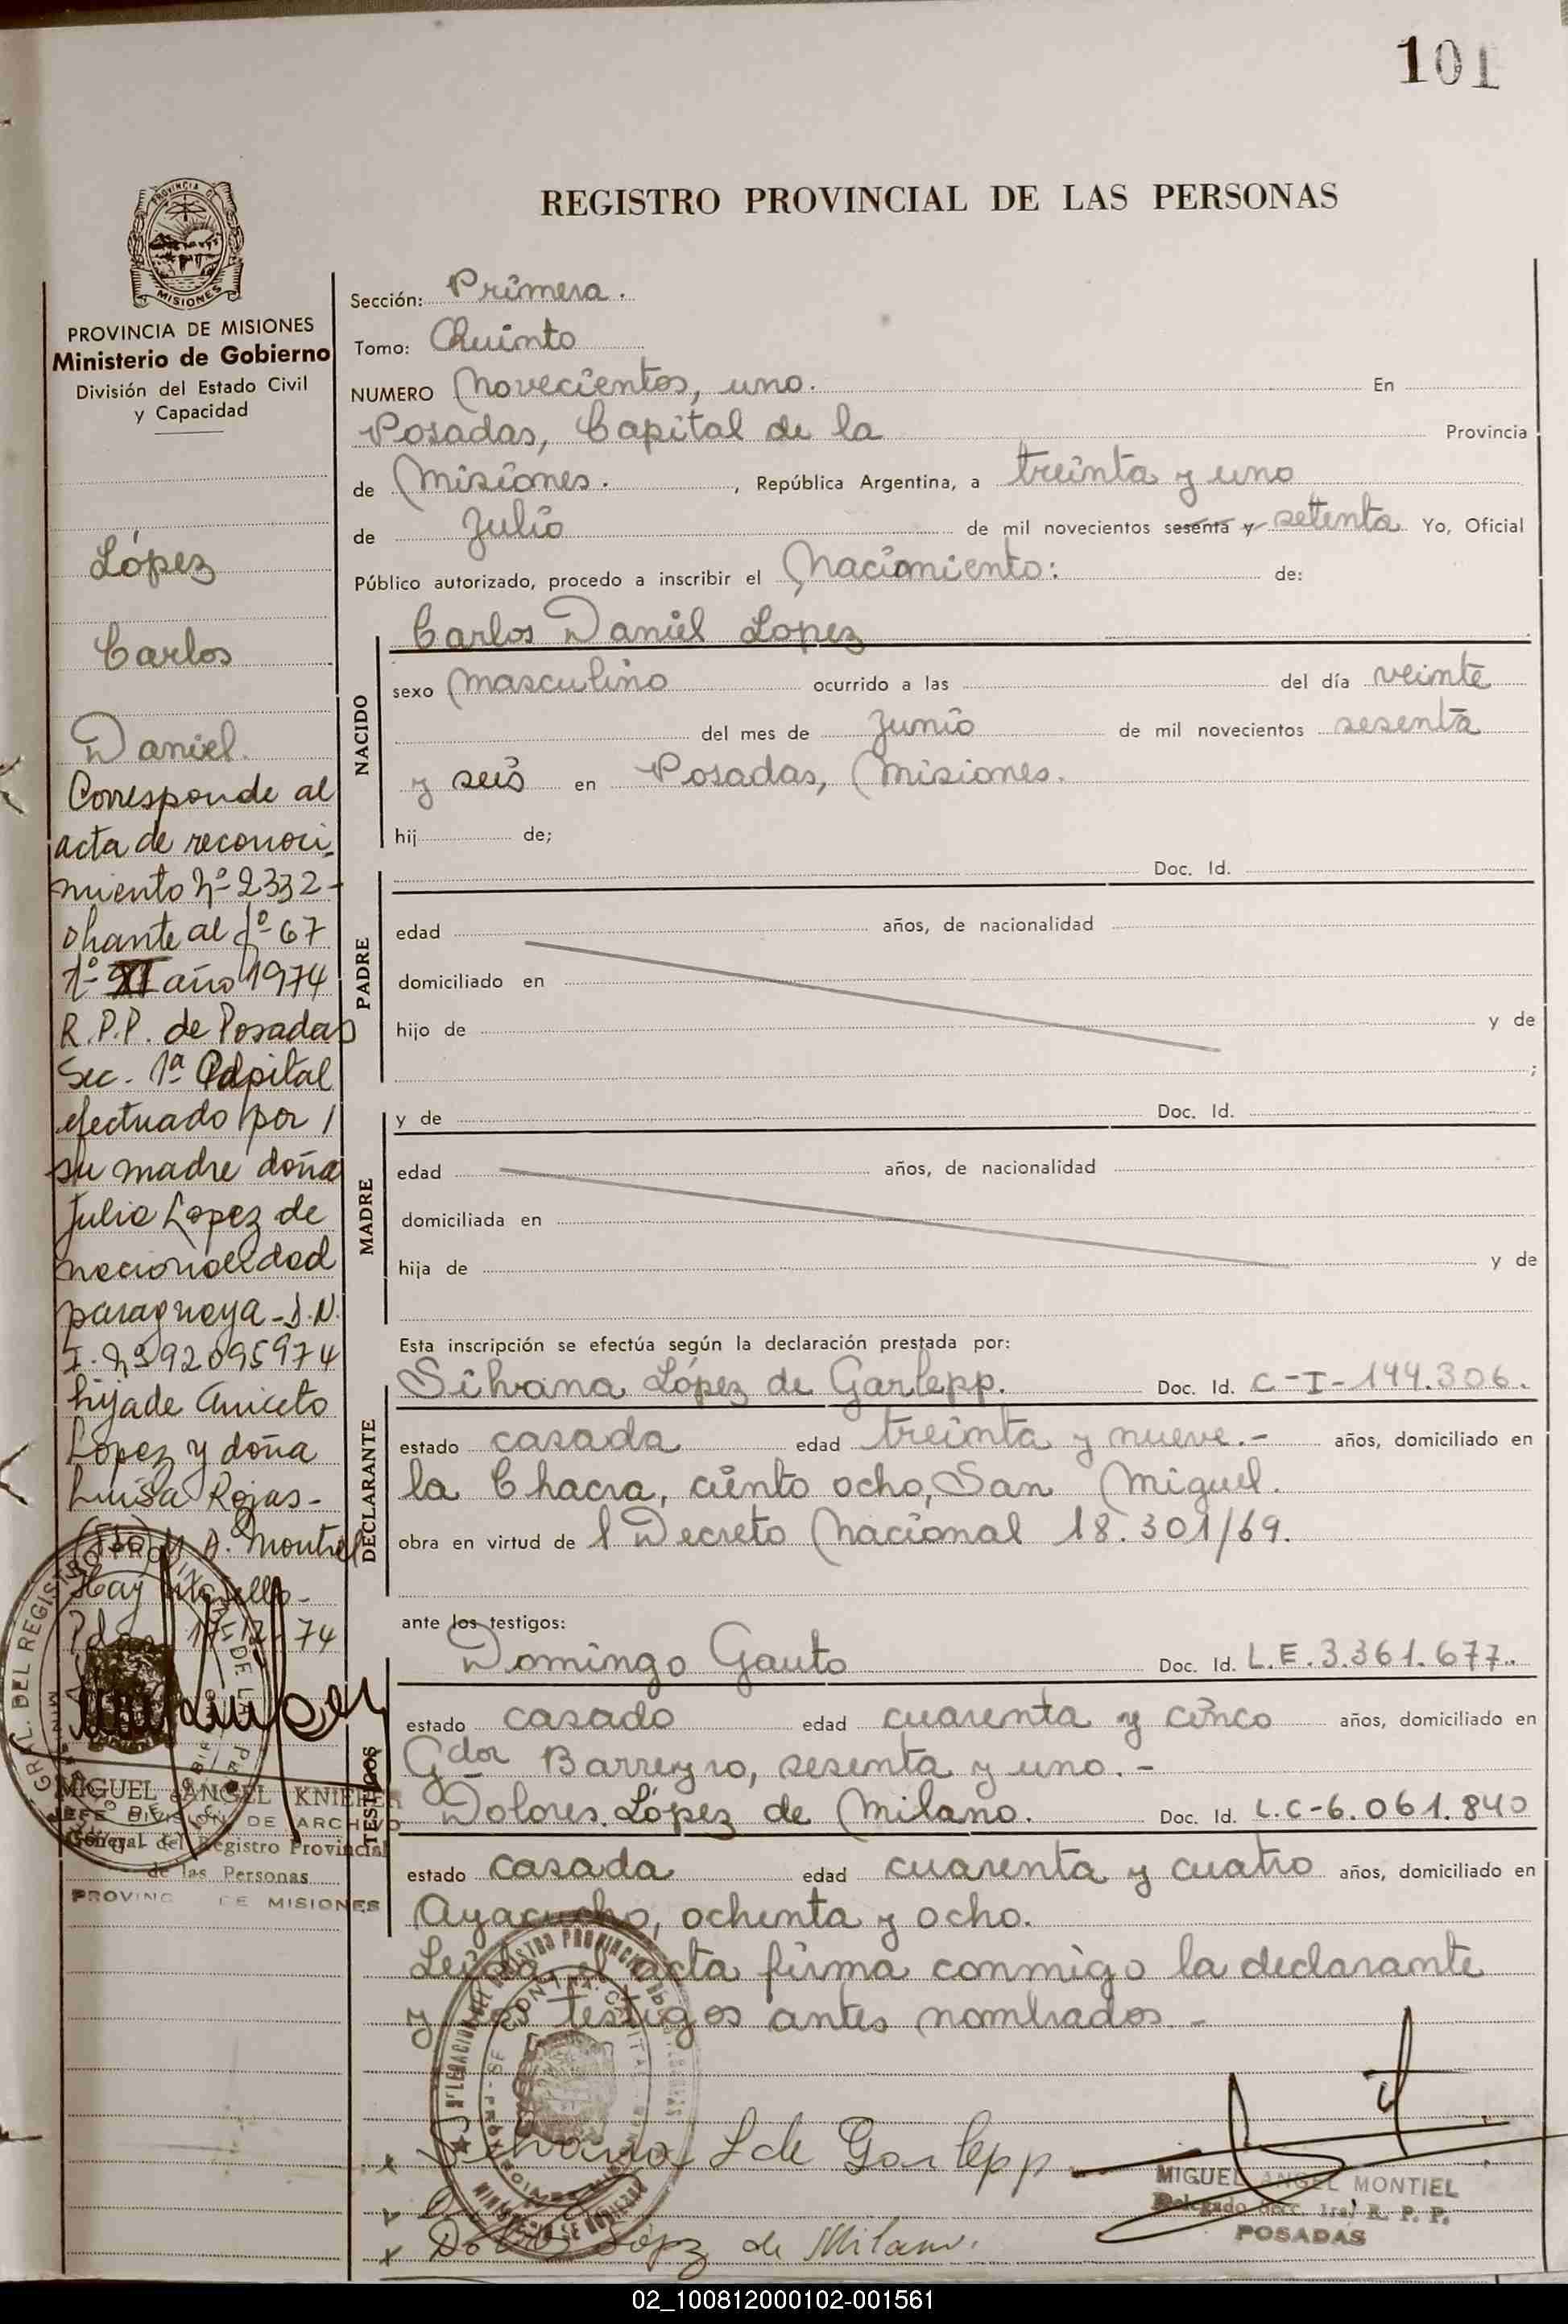 101
REGISTRO PROVINCIAL DE LAS PERSONAS
PROVINCIA DE MISIONES
Ministerio de Gobierno
División del Estado Civil
y Capacidad
López
Carlos
Daniel.
Corresponde al
acta de reconoci
miento Nº 2332-
obrante al fº 67
Tº XI año 1974
R.P.P. de Posadas
Sec. 1ª Capital
efectuado por /
su madre doña
Julia Lopez de
nacionalidad
paraguaya - D.N.
I. Nº 92095974
hija de Aniceto
Lopez y doña
Luisa Rojas -
(Fdo) M A. Montiel
Hay un sello -
Pdas. 17-12-74
MIGUEL ANGEL KNIEPER
JEFE DIVISION DE ARCHIVO
General del Registro Provincial
de las Personas
PROVINC DE MISIONES
Sección: Primera.
Tomo: Quinto
NUMERO Novecientos, uno. En
Posadas, Capital de la Provincia
de Misiones. , República Argentina, a treinta y uno
de Julio de mil novecientos sesenta y setenta Yo, Oficial
Público autorizado, procedo a inscribir el Nacimiento: de:
Carlos Daniel Lopez
NACIDO
sexo masculino ocurrido a las del día veinte
del mes de Junio de mil novecientos sesenta
y seis en Posadas, Misiones.
hij de;
PADRE
Doc. Id.
edad años, de nacionalidad
domiciliado en
hijo de y de
;
MADRE
y de Doc. Id.
edad años, de nacionalidad
domiciliada en
hija de y de
Esta inscripción se efectúa según la declaración prestada por:
DECLARANTE
Silvana López de Garlepp. Doc. Id. C-I-144.306.
estado casada edad treinta y nueve.- años, domiciliado en
la Chacra, ciento ocho, San Miguel.
obra en virtud de l Decreto Nacional 18.301/69.
ante los testigos:
TESTIGOS
Domingo Gauto Doc. Id. L.E.3.361.677.
estado casado edad cuarenta y cinco años, domiciliado en
Gdor Barreyro, sesenta y uno.-
Dolores López de Milano. Doc. Id. L.C-6.061.840
estado casada edad cuarenta y cuatro años, domiciliado en
Ayacucho, ochenta y ocho.
Leída el acta firma conmigo la declarante
y los testigos antes nombrados.-
Silvana L de Garlepp
Dolores López de Milano.
MIGUEL ANGEL MONTIEL
Delegado Secc. 1ra. R. P. P.
POSADAS
02_100812000102-001561